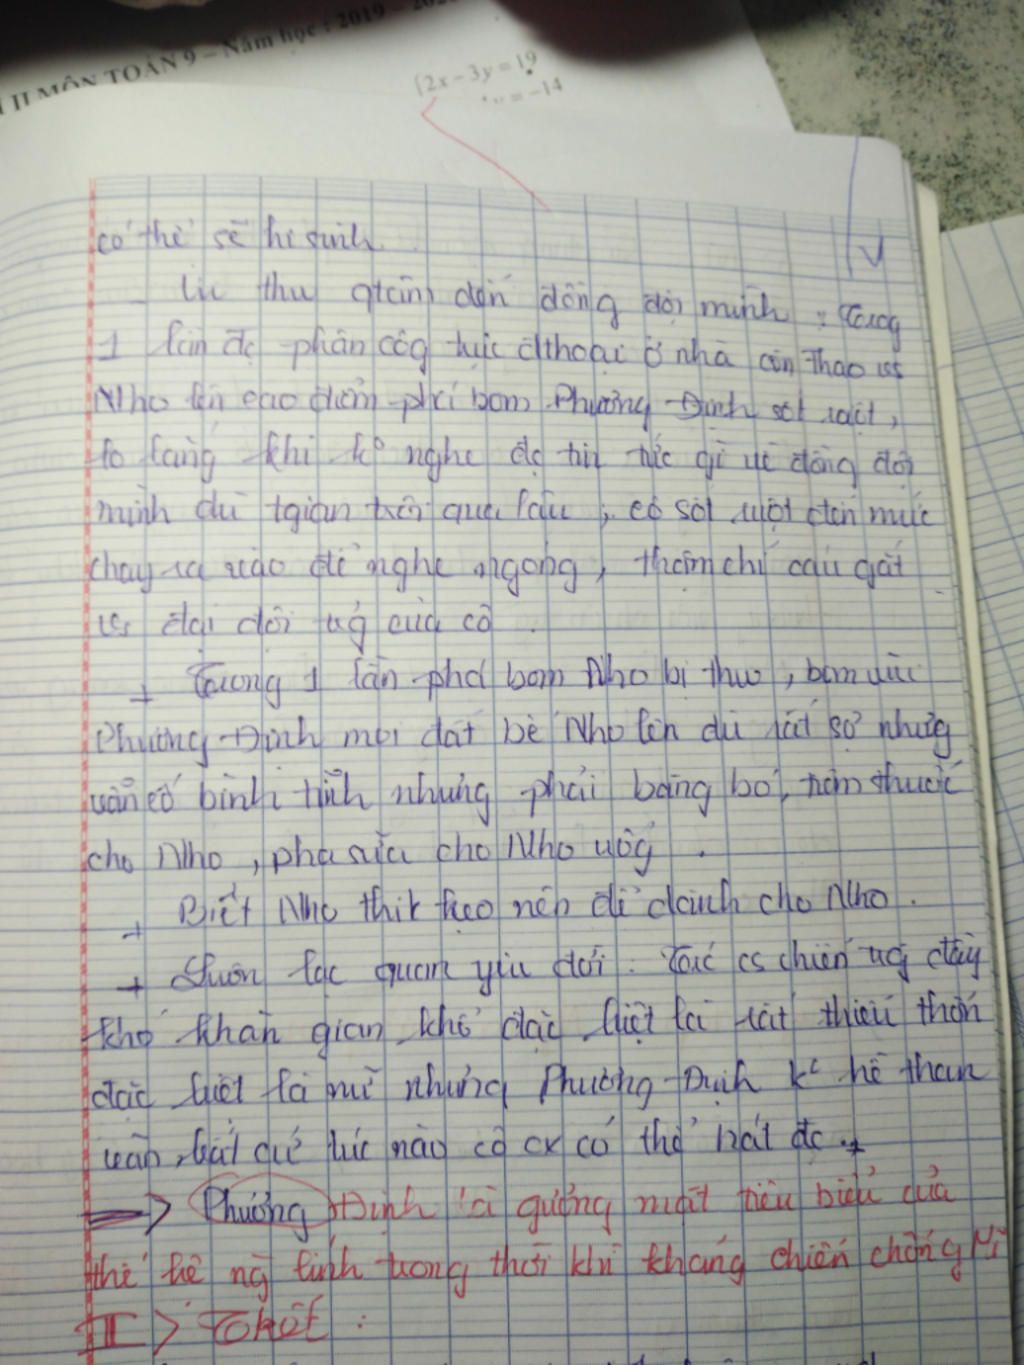 II MÔN TOÁN 9 – Năm học : 2019 – 20
{2x – 3y = 19
= –14
có thể sẽ hi sinh.
đến đồng đội mình : Trong
1 lần đc phân côg trực đthoại ở nhà còn Thao vs
Nho lên cao điểm phá bom. Phương Định sốt ruột,
lo lắng khi ko nghe đc tin tức gì về đồng đội
mình dù tgian trôi qua lâu, cô sốt ruột đến mức
chạy ra vào để nghe ngóng, thậm chí cáu gắt
vs đại đội trg của cô.
+ Trong 1 lần phá bom Nho bị thw, bom vùi
Phương Định moi đất bế Nho lên dù rất sợ nhưng
vẫn cố bình tĩnh nhưng phải băng bó, tiêm thuốc
cho Nho, pha sữa cho Nho uốg.
+ Biết Nho thik kẹo nên để dành cho Nho.
+ Luôn lạc quan yêu đời : Trog cs chiến trg đầy
khó khăn gian khổ đặc biệt là rất thiếu thốn
đặc biệt là nữ nhưng Phương Định ko hề than
vãn, bất cứ lúc nào cô cx có thể hát đc.
→ Phương Định là gương mặt tiêu biểu của
thế hệ ng lính trong thời khì kháng chiến chống Mĩ
II > Chốt :